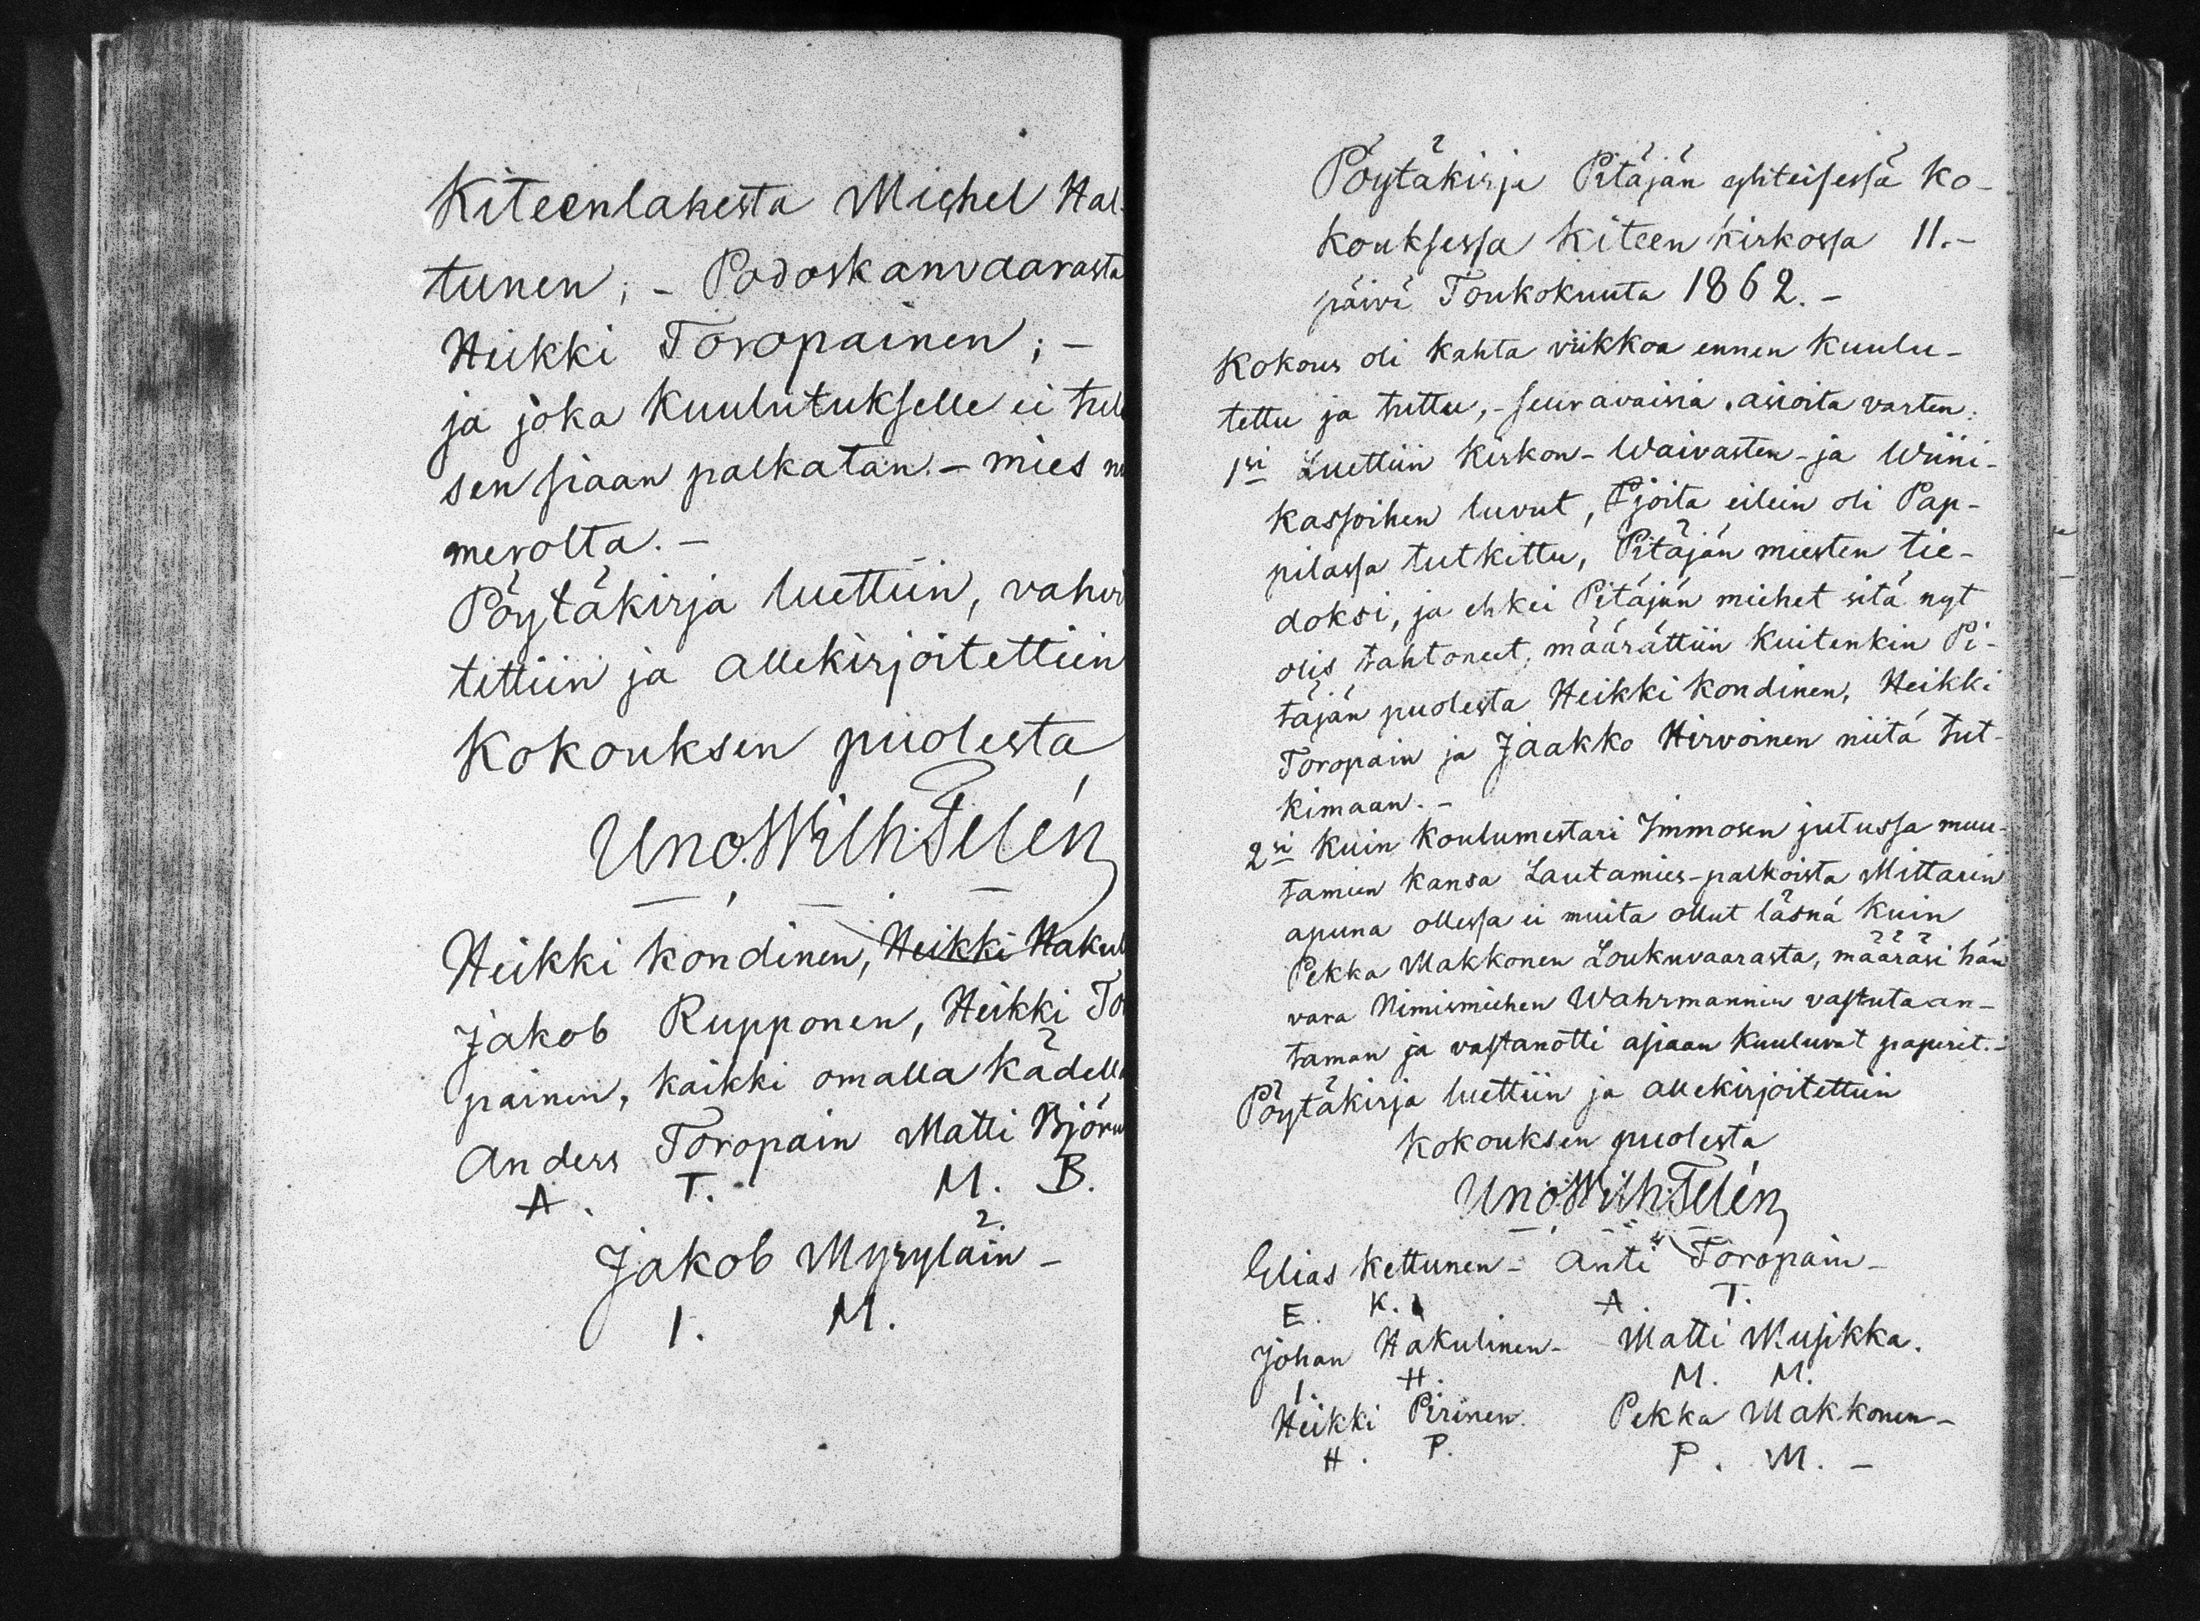 Kiteenlahesta Michel Hal-
tunen; - Podoskanvaarasta
Heikki Toropainen; -
ja joka Kuulutukselle ei tul
sen siaan palkatan. - mies
merolta. -
Pöytäkirja luettiin, vahvi
tettiin ja allekirjoitettiin
Kokouksen puolesta
Uno Wilh: Telén
Heikki Kondinen, Heikki Hakul
Jakob Rupponen, Heikki To
painen, kaikki omalla kädellä
Anders Toropain Matti Björn
A. T. M. B.
Jakob Myryläin -
I. M.
Pöytäkirja Pitäjän yhteisessä Ko-
kouksessa Kiteen Kirkossa 11.-
päivä Toukokuuta 1862. -
Kokous oli kahta viikkoa ennen kuulu-
tettu ja tuttu, - seuravaisia asioita varten:
1si Luettiin Kirkon- Waivasten- ja Wiini-
kassoihen luvut, joita eilein oli Pap-
pilassa tutkittu, Pitäjän miesten tie-
doksi, ja ehkei Pitäjän miehet sitä nyt
olis tahtoneet, määrättiin kuitenkin Pi-
täjän puolesta Heikki Kondinen, Heikki
Toropain ja Jaakko Hirvoinen niitä tut-
kimaan. -
2si Kuin Koulumestari Immosen jutussa muu-
tamien kansa Lautamies-palkoista Mittarin
apuna ollessa ei muita ollut läsnä kuin
Pekka Makkonen Loukuvaarasta, määräsi hän
vara Nimismiehen Wahrmannin vastutaan-
taman ja vastanotti asiaan kuuluvat paperit. -
Pöytäkirja luettiin ja allekirjoitettiin
Kokouksen puolesta
Uno Wilh: Telén
Elias Kettunen - Anti Toropain -
E. K. A T.
Johan Hakulinen - Matti Musikka.
I H. M. M.
Heikki Pirinen. Pekka Makkonen -
H. P. P. M. -